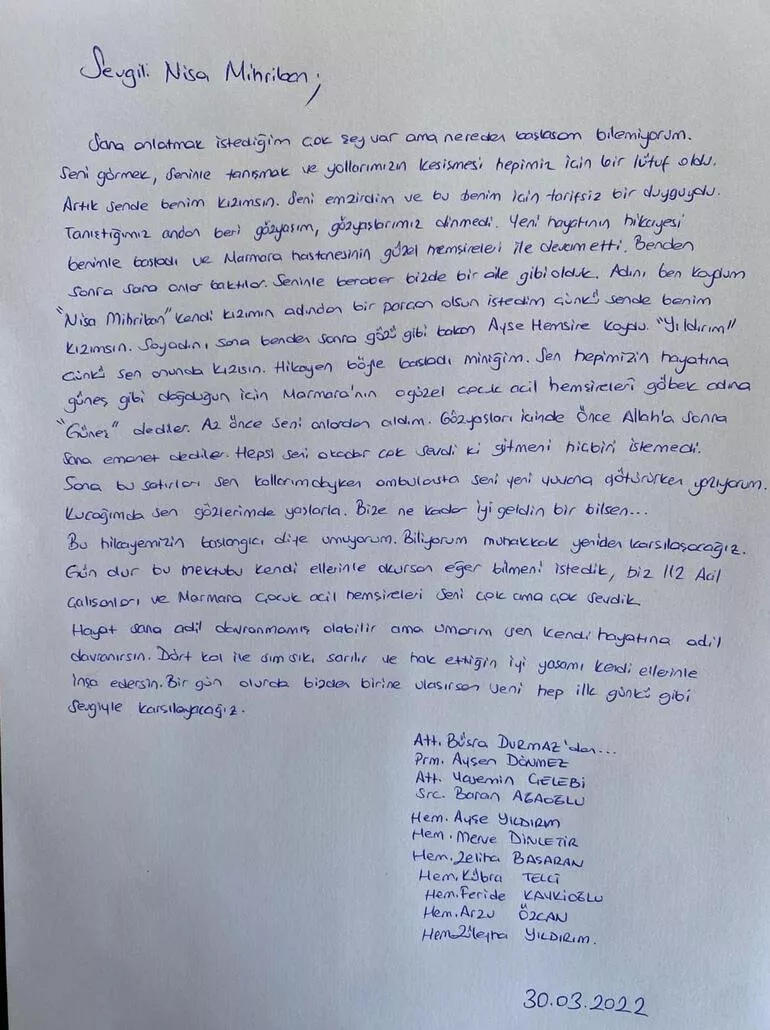 Sevgili Nisa Mihriban;
Sana anlatmak istediğim çok şey var ama nereden başlasam bilemiyorum.
Seni görmek, seninle tanışmak ve yollarımızın kesişmesi hepimiz için bir lütuf oldu.
Artık sende benim kızımsın. Seni emzirdim ve bu benim için tarifsiz bir duyguydu.
Tanıştığımız andan beri gözyaşım, gözyaşlarımız dinmedi. Yeni hayatının hikayesi
benimle başladı ve Marmara hastanesinin güzel hemşireleri ile devam etti. Benden
sonra sana onlar baktılar. Seninle beraber bizde bir aile gibi olduk. Adını ben koydum
"Nisa Mihriban" kendi kızımın adından bir parçan olsun istedim çünkü sende benim
kızımsın. Soyadını, sana benden sonra gözü gibi bakan Ayşe Hemşire koydu. "Yıldırım"
çünkü sen onunda kızısın. Hikayen böyle başladı miniğim. Sen hepimizin hayatına
güneş gibi doğduğun için Marmara'nın o güzel çocuk acil hemşireleri göbek adına
"Güneş" dediler. Az önce seni onlardan aldım. Gözyaşları içinde Önce Allah'a sonra
sana emanet dediler. Hepsi seni okadar çok sevdi ki gitmeni hiçbiri istemedi.
Sana bu satırları sen kollarımdayken ambulasta seni yeni yuvana götürürken yazıyorum.
Kucağımda sen gözlerimde yaşlarla. Bize ne kadar iyi geldin bir bilsen...
Bu hikayemizin başlangıcı diye umuyorum. Biliyorum muhakkak yeniden karşılaşacağız.
Gün olur bu mektubu kendi ellerinle okursan eğer bilmeni istedik, biz 112 Acil
Çalışanları ve Marmara Çocuk acil hemşireleri seni çok ama çok sevdik.
Hayat sana adil davranmamış olabilir ama umarım sen kendi hayatına adil
davranırsın. Dört kol ile sımsıkı sarılır ve hak ettiğin iyi yaşamı kendi ellerinle
inşa edersin. Bir gün olurda bizden birine ulaşırsan seni hep ilk günkü gibi
sevgiyle karşılayacağız.
Att. Büşra DURMAZ'dan...
Prm. Ayşen DÖNMEZ
Att. Yasemin ÇELEBİ
Src. Baran AĞAOĞLU
Hem. Ayşe YILDIRIM
Hem. Merve DİNLETİR
Hem. Zeliha BAŞARAN
Hem. Kübra TELCİ
Hem. Feride KAVKİOĞLU
Hem. Arzu ÖZCAN
Hem. Züleyha YILDIRIM.
30.03.2022